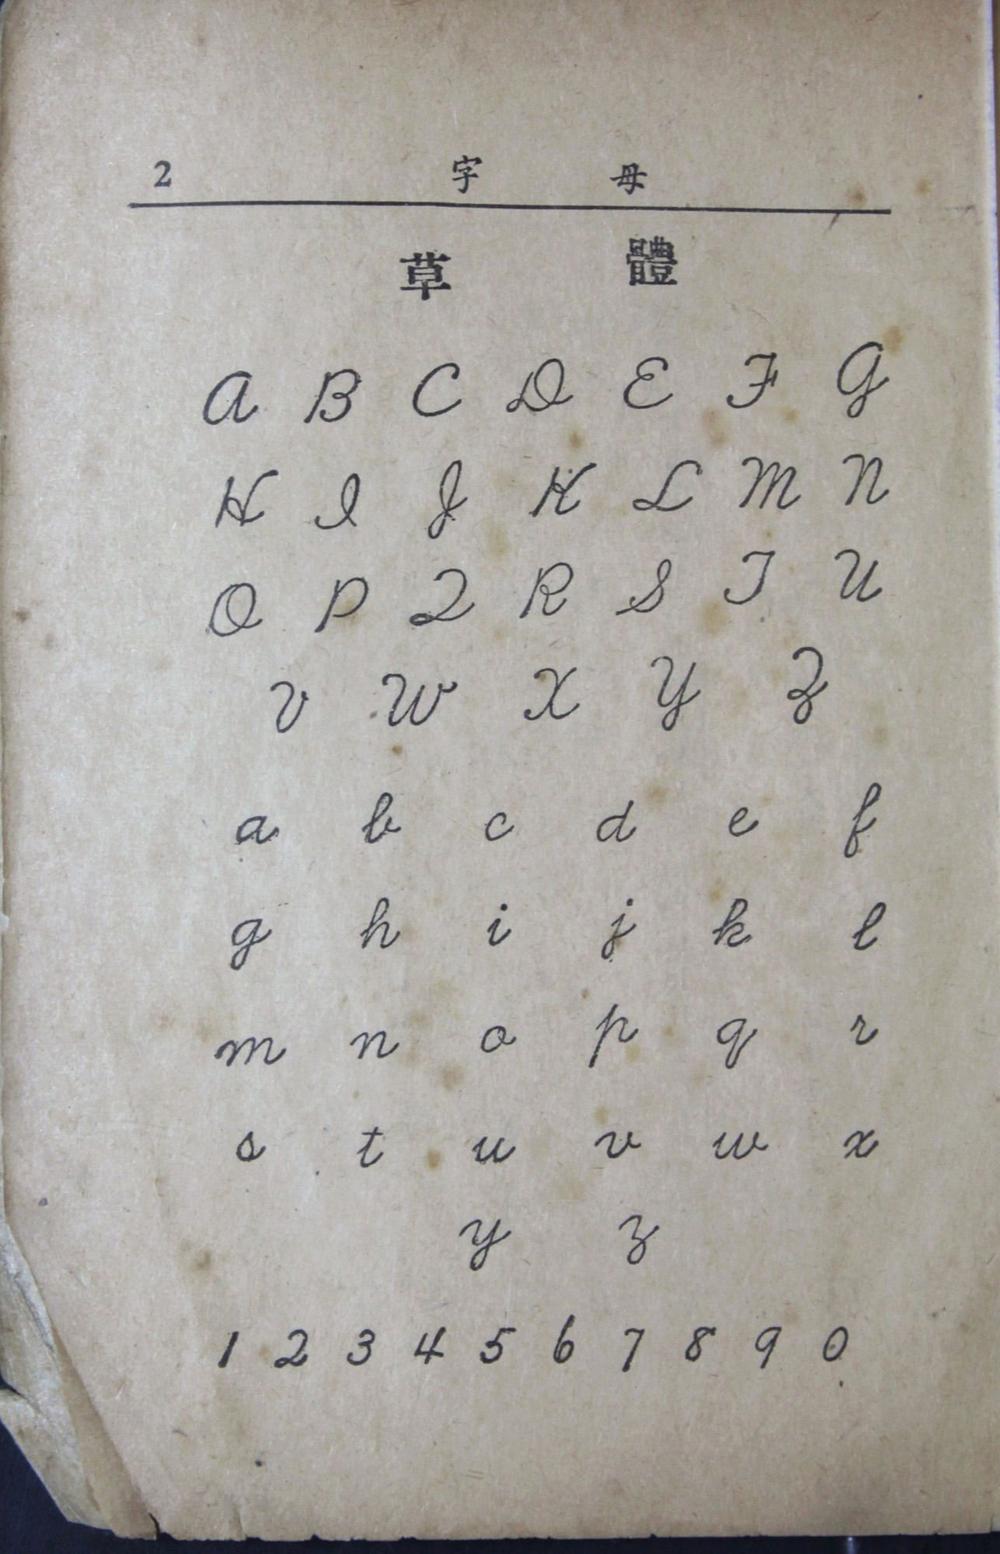 2 字母
草體
A B C D E F G
H I J K L M N
O P Q R S T U
V W X Y Z
a b c d e f
g h i j k l
m n o p q r
s t u v w x
y z
1 2 3 4 5 6 7 8 9 0